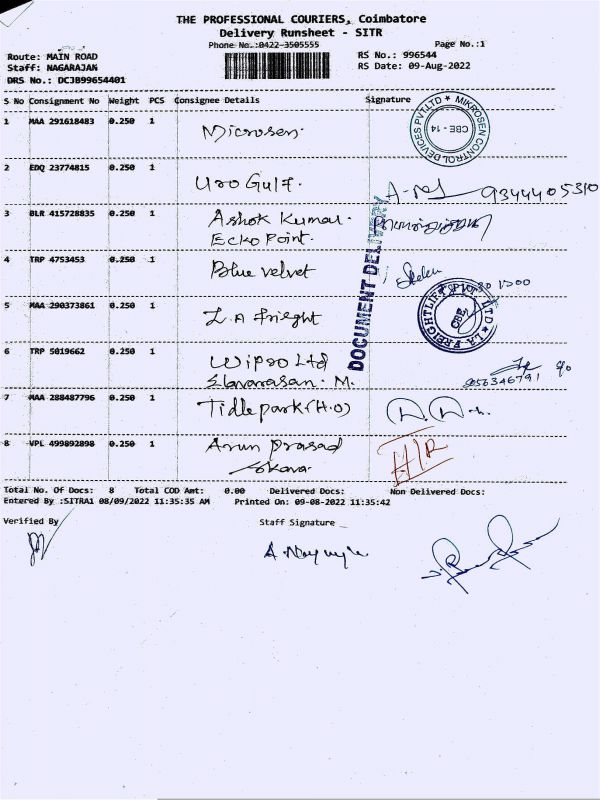 THE PROFESSIONAL COURIERS, Coimbatore
Delivery Runsheet - SITR
Phone No.:0422-3505555
Page No.:1
Route: MAIN ROAD
Staff: NAGARAJAN
DRS No.: DCJB99654401
RS No.: 996544
RS Date: 09-Aug-2022
S No Consignment No Weight PCS Consignee Details Signature
1 MAA 291618483 0.250 1 Microsen.
MIKROSEN CONTROL DEVICES PVT.LTD ★
CBE - 14
2 EDQ 23774815 0.250 1 Uro Gulf. 9344405310
3 BLR 415728835 0.250 1 Ashok Kumar.
Ecko Point.
DOCUMENT DELIVERY
4 TRP 4753453 0.250 1 Blue velvet
5 MAA 290373861 0.250 1 L.A frieght
CBE
6 TRP 5019662 0.250 1 Wipro Ltd
Elavarasan. M. 9056346791
7 MAA 288487796 0.250 1 Tidle park (H.O)
8 VPL 499892898 0.250 1 Arun Prasad
Total No. Of Docs: 8 Total COD Amt: 0.00 Delivered Docs: Non Delivered Docs:
Entered By :SITRA1 08/09/2022 11:35:35 AM Printed On: 09-08-2022 11:35:42
Verified By Staff Signature